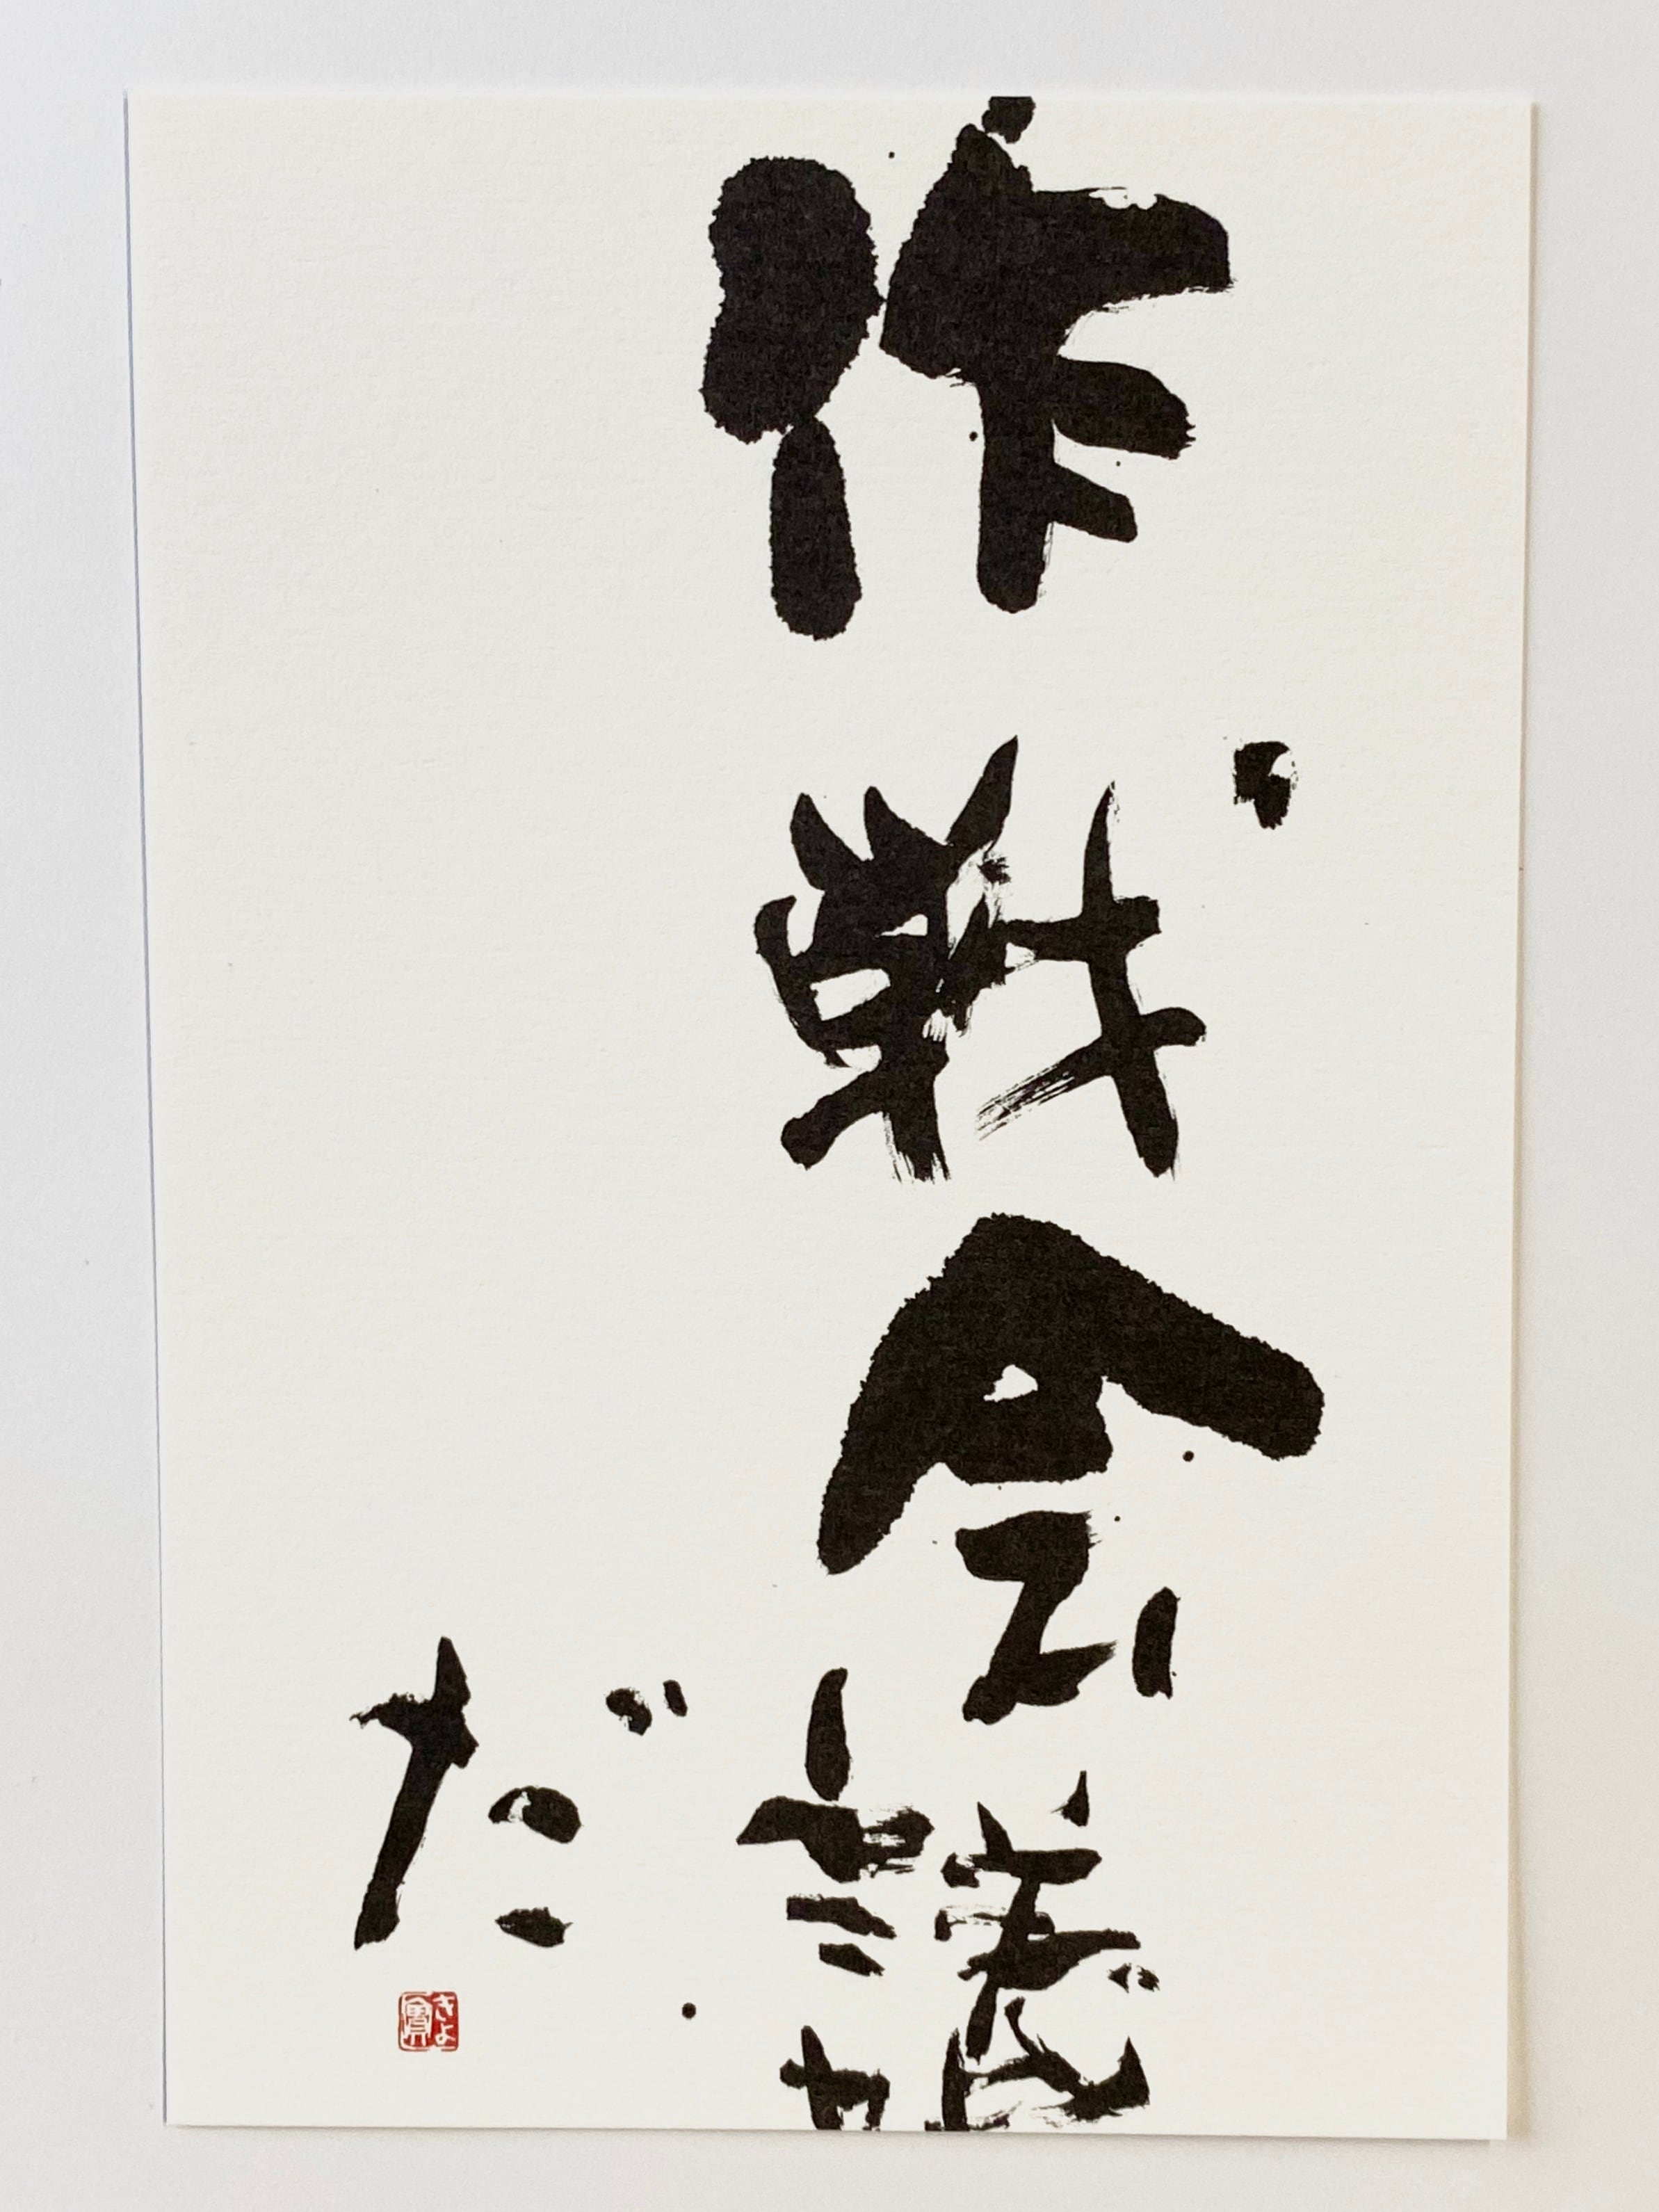 作戦会議
だ
きよ